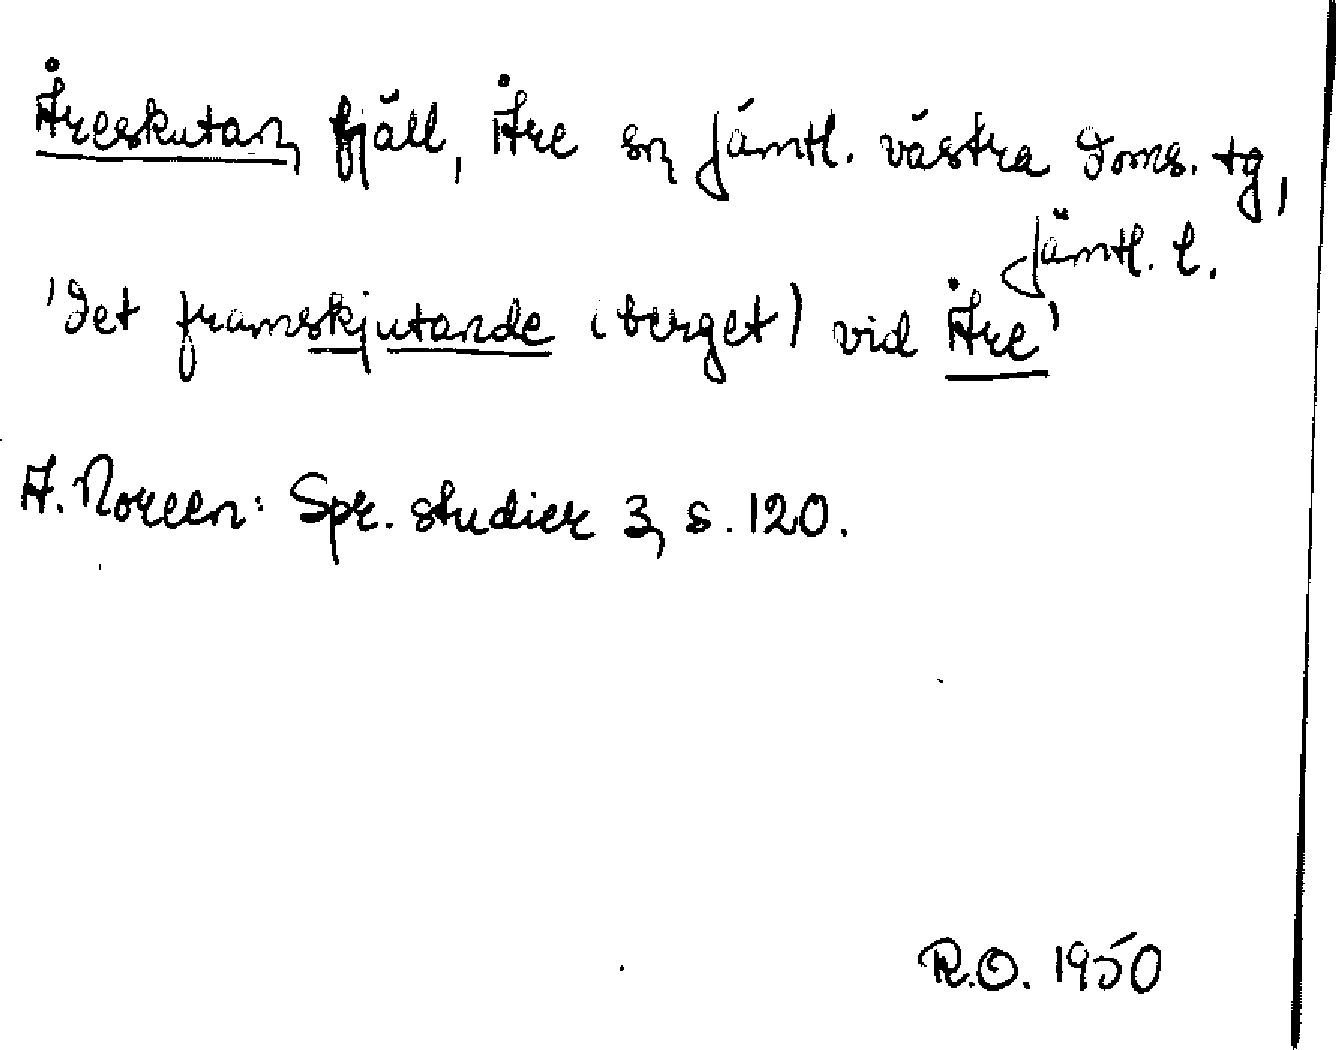 Åreskutan, fjäll, Åre sn, Jämtl. västra doms. tg,
Jämtl. l.
'det framskjutande (berget) vid Åre'
A. Noreen: Spr. studier 3, s. 120.
R.O. 1950